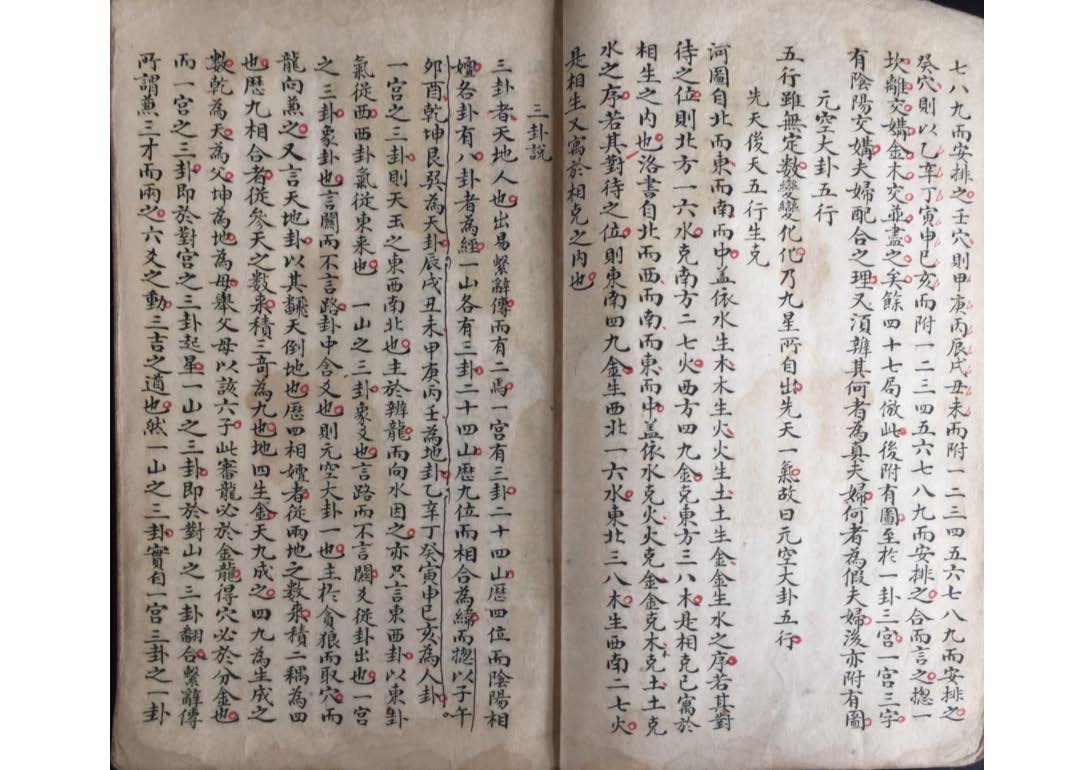 七八九而安排之壬穴則甲庚丙辰戌丑未而附一二三四五六七八九而安排之
癸穴則以乙辛丁寅申巳亥而附一二三四五六七八九而安排之合而言之揔一
坎離交媾金木交並盡之矣餘四十七局倣此後附有圖至於一卦三宮一宮三字
有陰陽交媾夫婦配合之理又湏辨其何者為真夫婦何者為假夫婦後亦附有圖
元空大卦五行
五行雖無定數變變化化乃九星所自出先天一氣故曰元空大卦五行
先天後天五行生克
河圖自北而東而南而中盖依水生木木生火火生土土生金金生水之序若其對
待之位則北方一六水克南方二七火西方四九金克東方三八木是相克已寓於
相生之內也洛書自北而西而南而東而中盖依水克火火克金金克木木克土土克
水之序若其對待之位則東南四九金生西北一六水東北三八木生西南二七火
是相生又寓於相克之內也
三卦說
三卦者天地人也出易繫辭傳而有二焉一宮有三卦二十四山歷四位而陰陽相
嬗各卦有八卦者為經一山各有三卦二十四山歷九位而相合為緯而揔以子午
卯酉乾坤艮巽為天卦辰戌丑未甲庚丙壬為地卦乙辛丁癸寅申巳亥為人卦
一宮之三卦則天玉之東西南北也主於辨龍而向水因之亦只言東西卦以東卦
氣從西西卦氣從東来也一山之三卦象爻也言路而不言關爻從卦出也一宮
之三卦象卦也言關而不言路卦中含爻也則元空大卦一也主於貪狼而取穴而
龍向兼之又言天地卦以其翻天倒地也歷四相嬗者從兩地之数来積二耦為四
也歷九相合者從參天之数来積三奇為九也地四生金天九成之四九為生成之
數乾為天為父坤為地為母舉父母以該六子此審龍必於金龍得穴必於分金也
而一宮之三卦即於對宮之三卦起星一山之三卦即於對山之三卦翻合繫辭傳
所謂兼三才而兩之六爻之動三吉之道也然一山之三卦實自一宮三卦之一卦